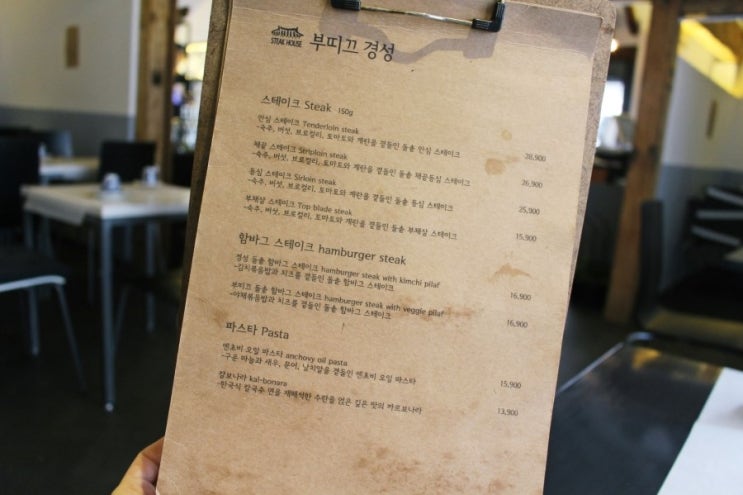 STEAK HOUSE 부띠끄 경성
스테이크 Steak 150g
안심 스테이크 Tenderloin steak
-숙주, 버섯, 브로컬리, 토마토와 계란을 곁들인 돌솥 안심 스테이크 28,900
채끝 스테이크 Striploin steak
-숙주, 버섯, 브로컬리, 토마토와 계란을 곁들인 돌솥 채끝등심 스테이크 26,900
등심 스테이크 Sirloin steak
-숙주, 버섯, 브로컬리, 토마토와 계란을 곁들인 돌솥 등심 스테이크 25,900
부채살 스테이크 Top blade steak
-숙주, 버섯, 브로컬리, 토마토와 계란을 곁들인 돌솥 부채살 스테이크 15,900
함바그 스테이크 hamburger steak
경성 돌솥 함바그 스테이크 hamburger steak with kimchi pilaf
-김치볶음밥과 치즈를 곁들인 돌솥 함바그 스테이크 16,900
부띠끄 돌솥 함바그 스테이크 hamburger steak with veggie pilaf
-야채볶음밥과 치즈를 곁들인 돌솥 함바그 스테이크 16,900
파스타 Pasta
엔쵸비 오일 파스타 anchovy oil pasta
-구운 마늘과 새우, 문어, 날치알을 곁들인 엔쵸비 오일 파스타 15,900
칼보나라 kal-bonara
-한국식 칼국수 면을 재해석한 수란을 얹은 깊은 맛의 까르보나라 13,900